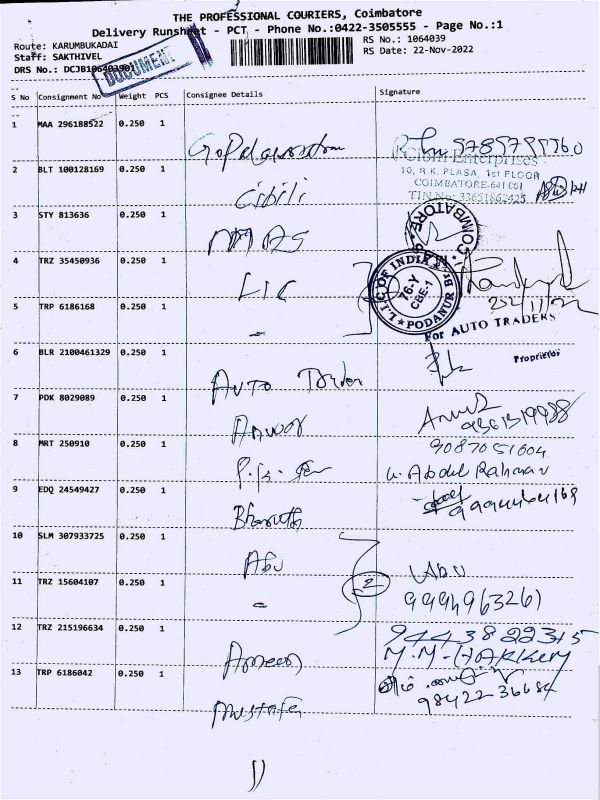 THE PROFESSIONAL COURIERS, Coimbatore
Delivery Runsheet - PCT - Phone No.:0422-3505555 - Page No.:1
Route: KARUMBUKADAI
RS No.: 1064039
Staff: SAKTHIVEL
RS Date: 22-Nov-2022
DRS No.: DCJB106403901
DOCUMENT
S No Consignment No Weight PCS Consignee Details Signature
1 MAA 296188522 0.250 1
Enterprises
10, R.K. PLASA, 1st FLOOR
COIMBATORE-641 001
2 BLT 100128169 0.250 1
3 STY 813636 0.250 1
COIMBATORE
4 TRZ 35450936 0.250 1 LIC
L.I.C OF INDIA BR. PODANUR
76-Y
CBE-1
5 TRP 6186168 0.250 1 "
For AUTO TRADERS
Proprietor
6 BLR 2100461329 0.250 1 Auto
7 PDK 8029089 0.250 1 Anwar
8 MRT 250910 0.250 1
9087051004
U. Abdul Rahman
9 EDQ 24549427 0.250 1 Bharath
10 SLM 307933725 0.250 1 Abu
2
ABU
11 TRZ 15604107 0.250 1 "
9994963261
12 TRZ 215196634 0.250 1 Ameer
9443822315
M.M-HAKKeM
13 TRP 6186042 0.250 1 Mustafa
98422 36684